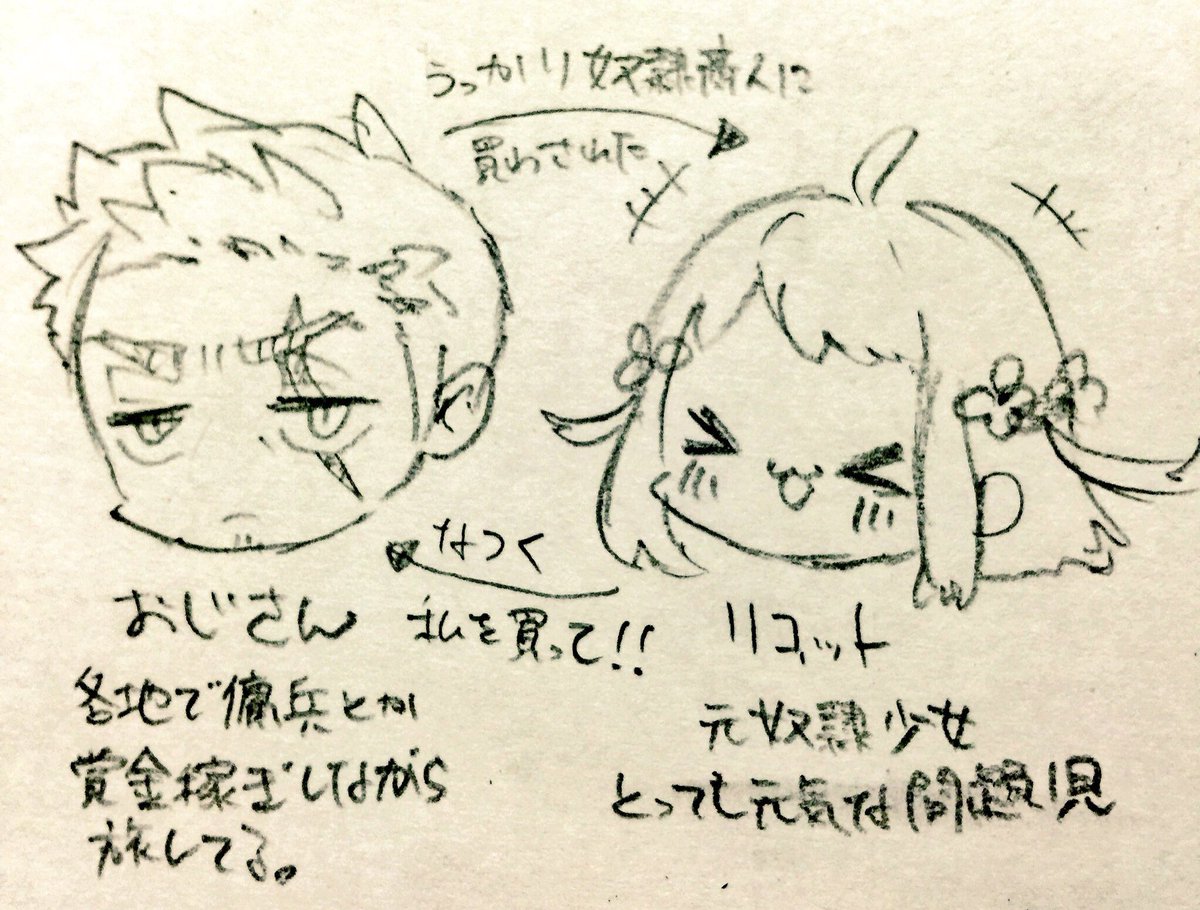 うっかり奴隷商人に
買わされた
なつく
私を買って!!
おじさん
各地で傭兵とか
賞金稼ぎしながら
旅してる。
リュット
元奴隷少女
とっても元気な問題児